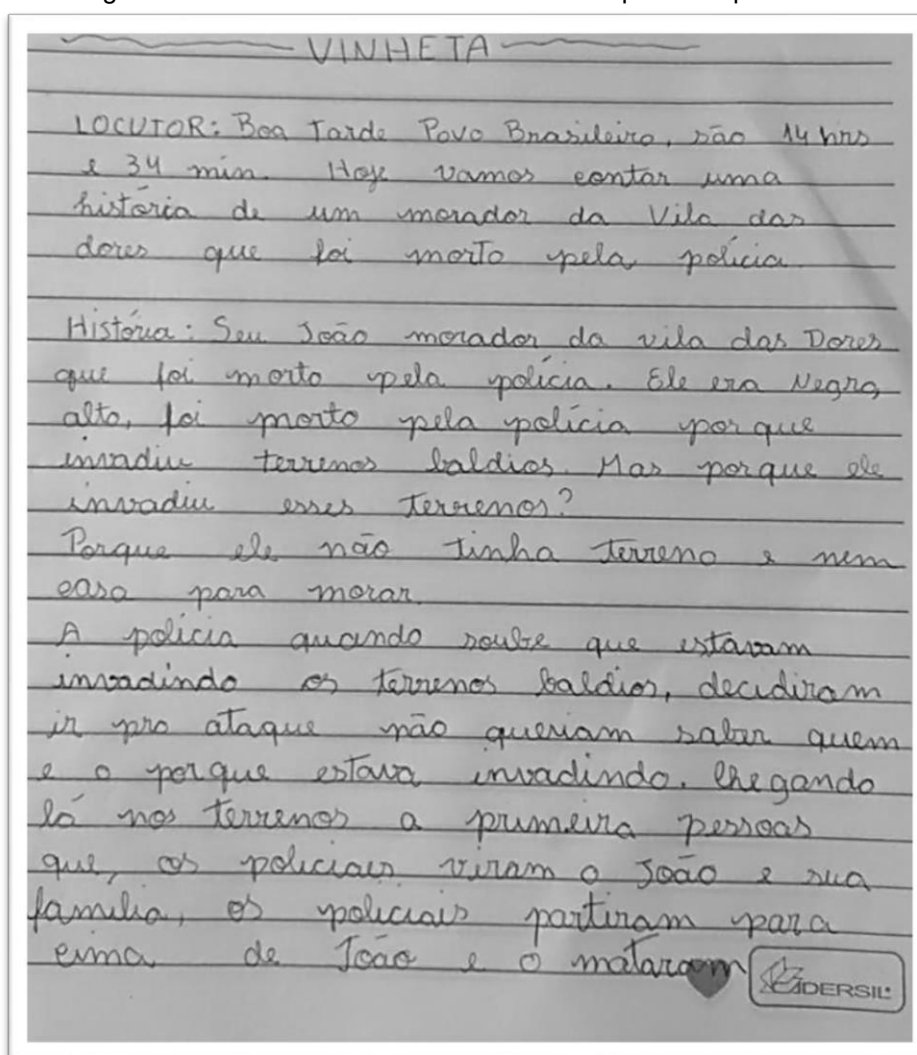 VINHETA
LOCUTOR: Boa Tarde Povo Brasileiro, são 14 hrs
e 34 min. Hoje vamos contar uma
história de um morador da Vila das
dores que foi morto pela polícia.
História: Seu João morador da vila das Dores
que foi morto pela polícia. Ele era Negro,
alto, foi morto pela polícia por que
invadiu terrenos baldios. Mas porque ele
invadiu esses terrenos?
Porque ele não tinha terreno e nem
casa para morar.
A polícia quando soube que estavam
invadindo os terrenos baldios, decidiram
ir pro ataque não queriam saber quem
e o porque estava invadindo. Chegando
lá nos terrenos a primeira pessoas
que, os policiais viram o João e sua
família, os policiais partiram para
cima de João e o mataram
DERSIL